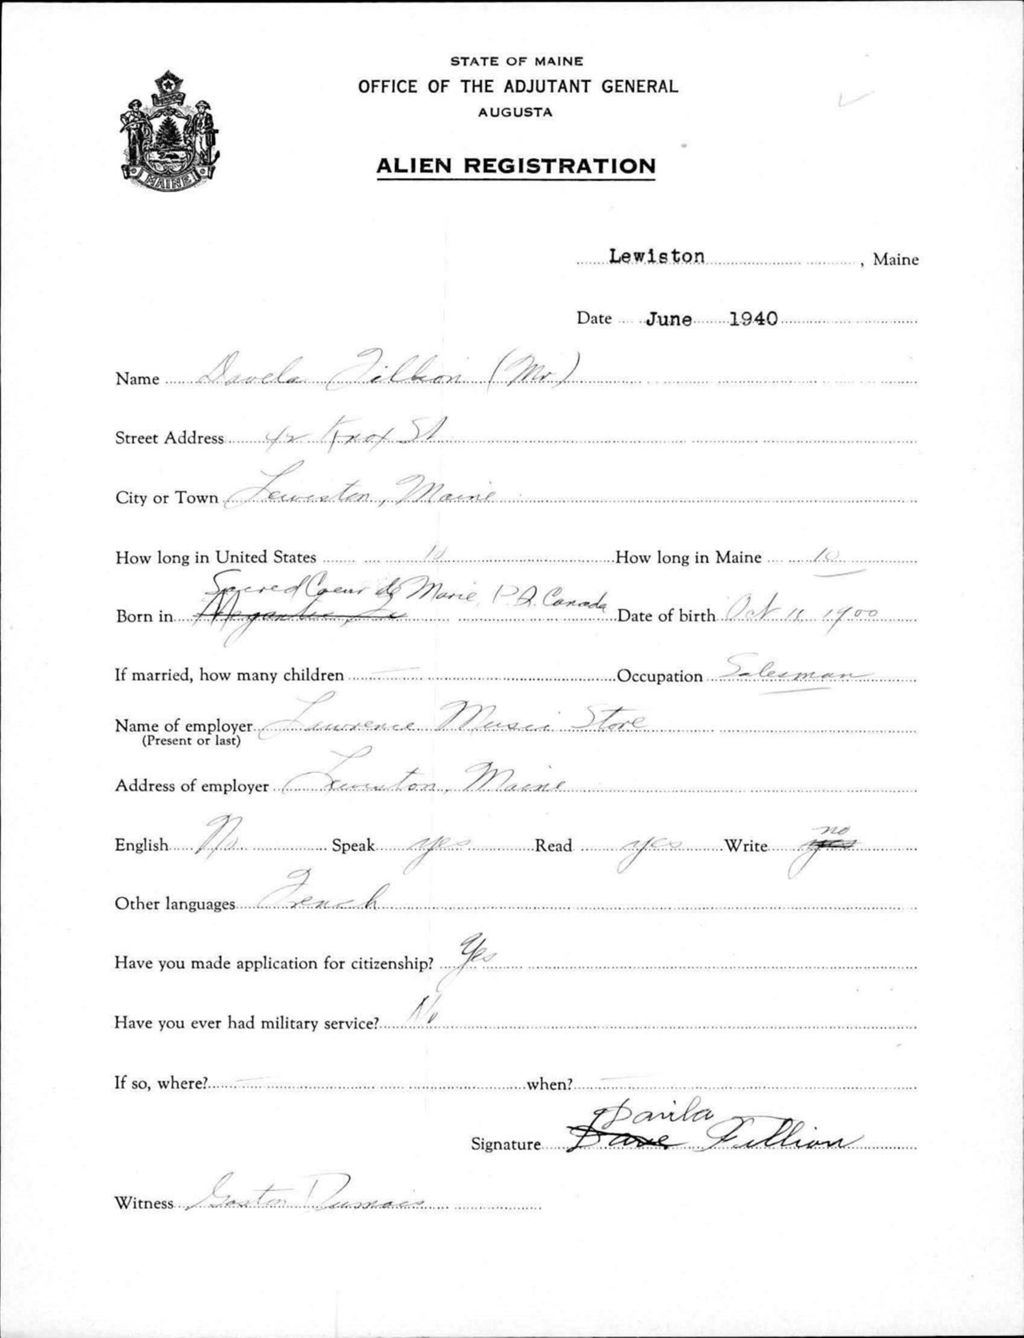 STATE OF MAINE
OFFICE OF THE ADJUTANT GENERAL
AUGUSTA
ALIEN REGISTRATION
MAINE
Lewiston, Maine
Date June 1940
Name Davela Fillion (Mr)
Street Address 42 Knox St
City or Town Lewiston, Maine
How long in United States How long in Maine 10
Sacred Coeur de Marie P.Q. Canada
Born in Date of birth Oct 11, 1900
If married, how many children — Occupation Salesman
Name of employer Lawrence Music Store
(Present or last)
Address of employer Lewiston, Maine
no
English No Speak yes Read yes Write yes
Other languages French
Have you made application for citizenship? Yes
Have you ever had military service? No
If so, where? — when? —
Davila
Signature Dave Fillion
Witness Gaston Dumais